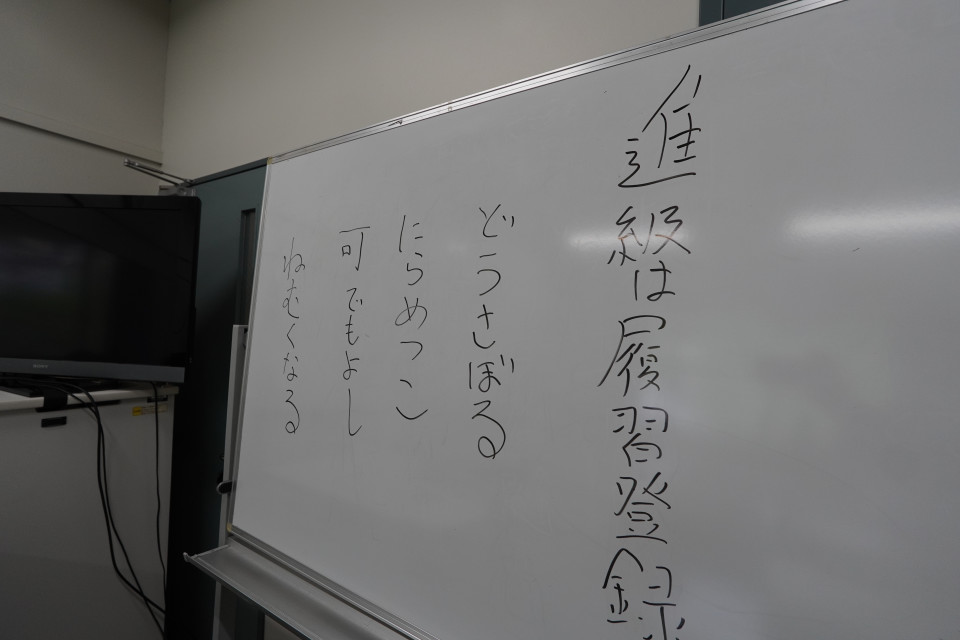 進級は履習登録
どうさぼる
にらめっこ
可でもよし
ねむくなる
SONY